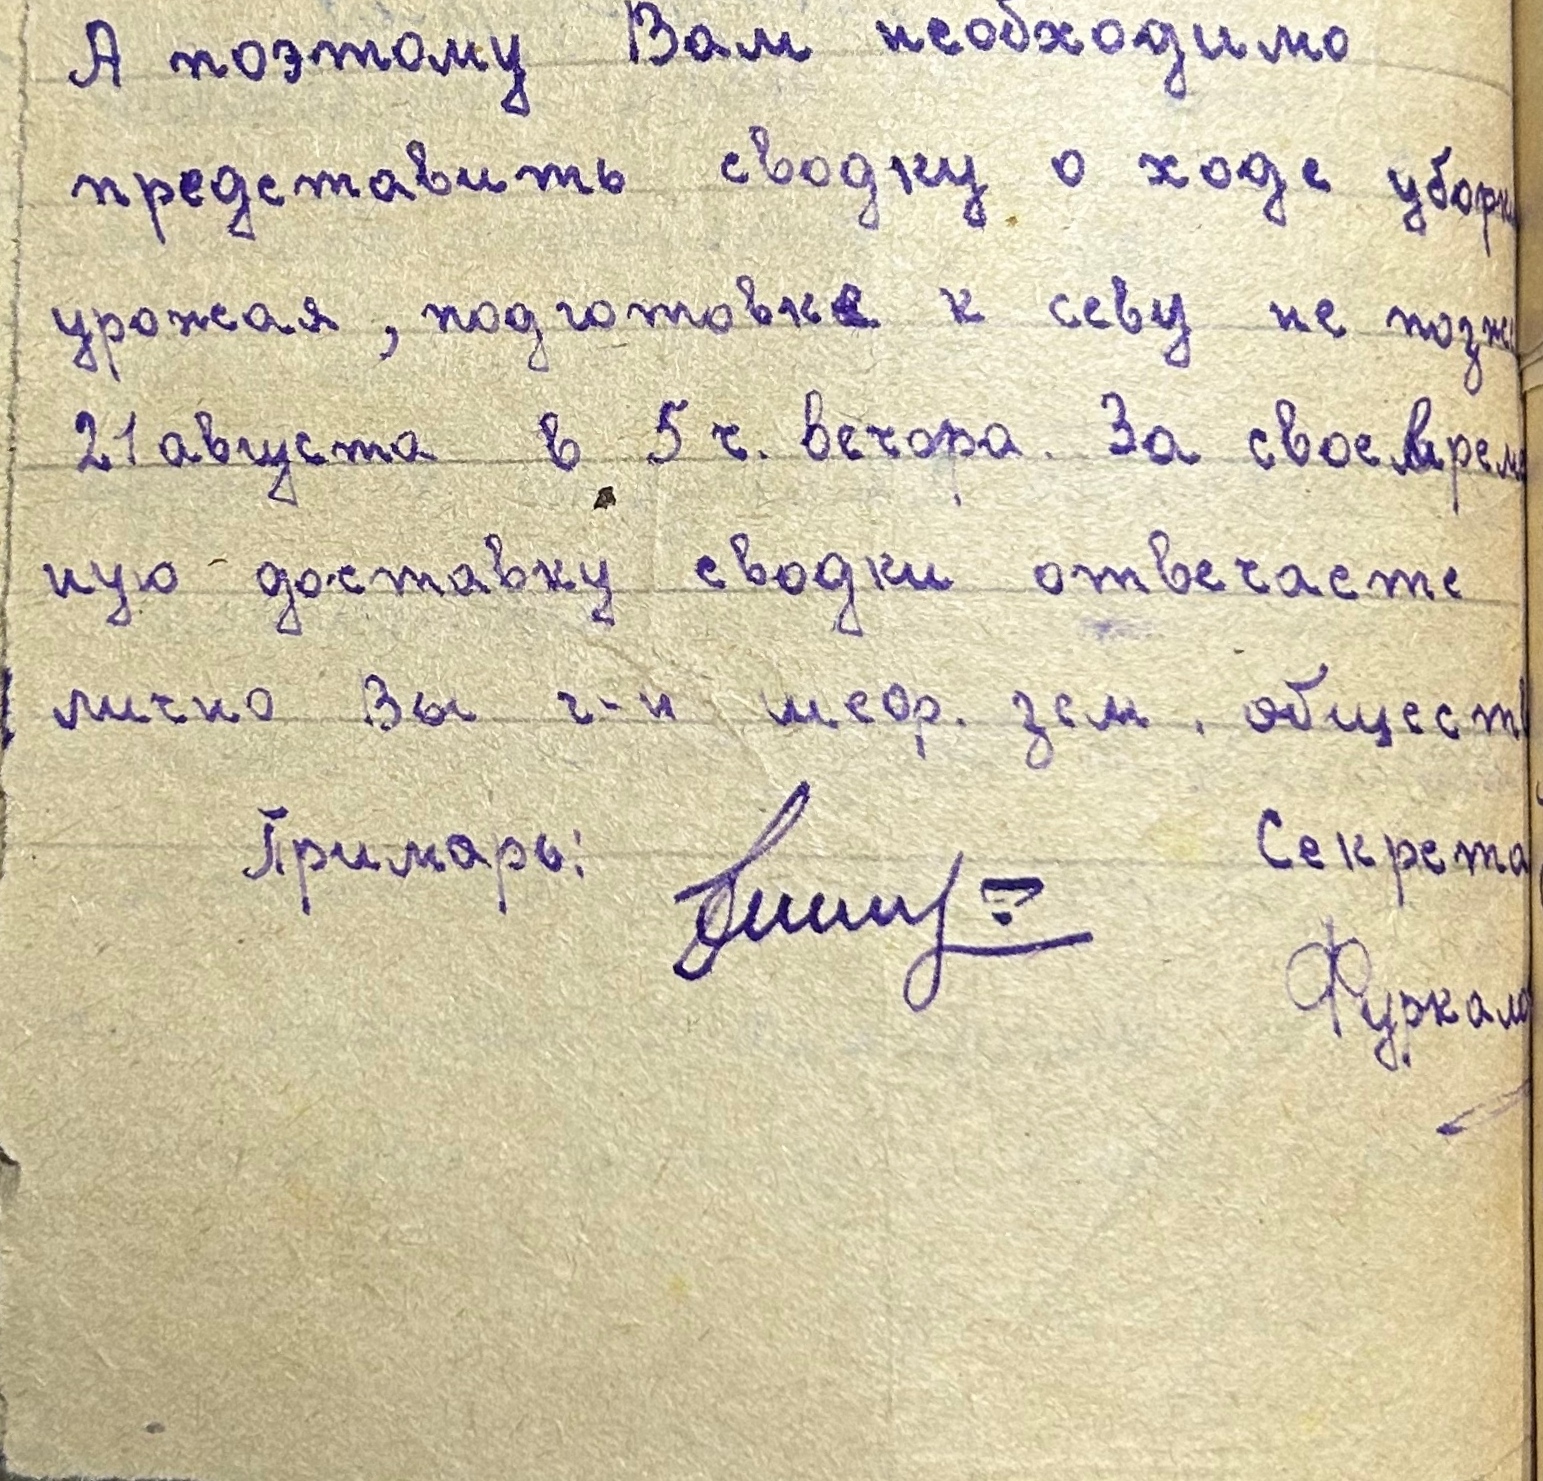 А поэтому Вам необходимо
представить сводку о ходе уборки
урожая, подготовке к севу не позже
21 августа в 5 ч. вечора. За своевремен
ную доставку сводки отвечаете
лично Вы г-н шеф. зем. обществ
Примарь: Секрета
Фуркало